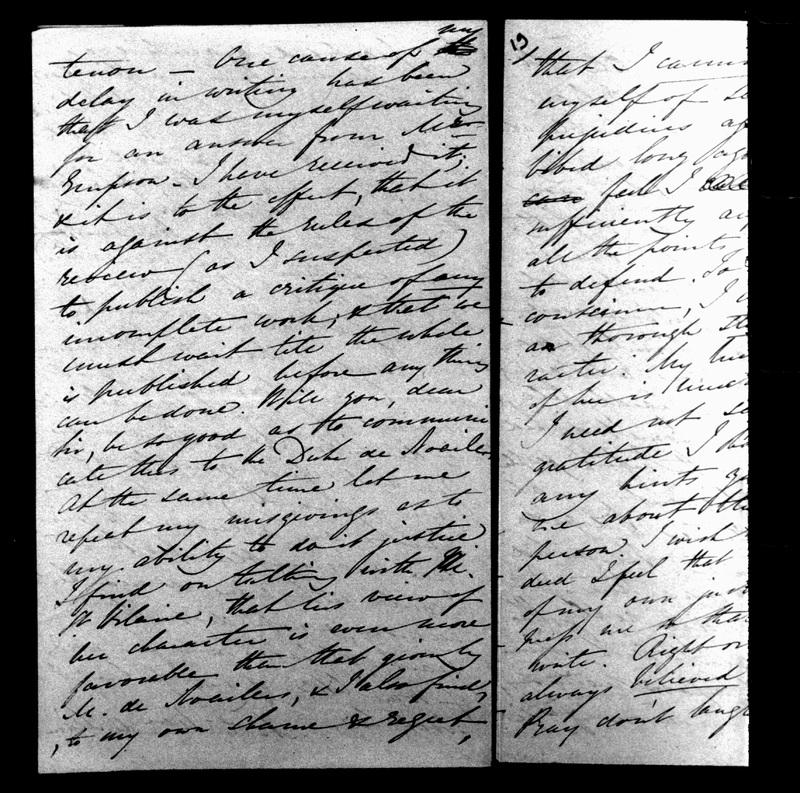 my
tenon — One cause of the
delay in writing has been
that I was myself waiting
for an answer from Mr
Empson. I have received it,
& it is to the effect, that it
is against the rules of the
review (as I suspected)
to publish a critique of any
incomplete work, & that we
must wait till the whole
is published before any thing
can be done. Will you, dear
Sir, be so good as to communi
cate this to the Duke de Noailles
At the same time let me
repeat my misgivings as to
my ability to do it justice
I find on talking with M.
St Hilaire, that his view of
her character is even more
favorable than that given by
M. de Noailles, & I also find,
to my own shame & regret,
19
that I cannot
myself of
prejudices
bibed long ago
feel I
sufficiently
all the points
to defend. To
conscience, I
as thorough
racter. My
of her is
I need not
gratitude I
any hints
me about
person. I wish
deed I feel that
of my own
me
write. Right or
always believed
Pray don't laugh